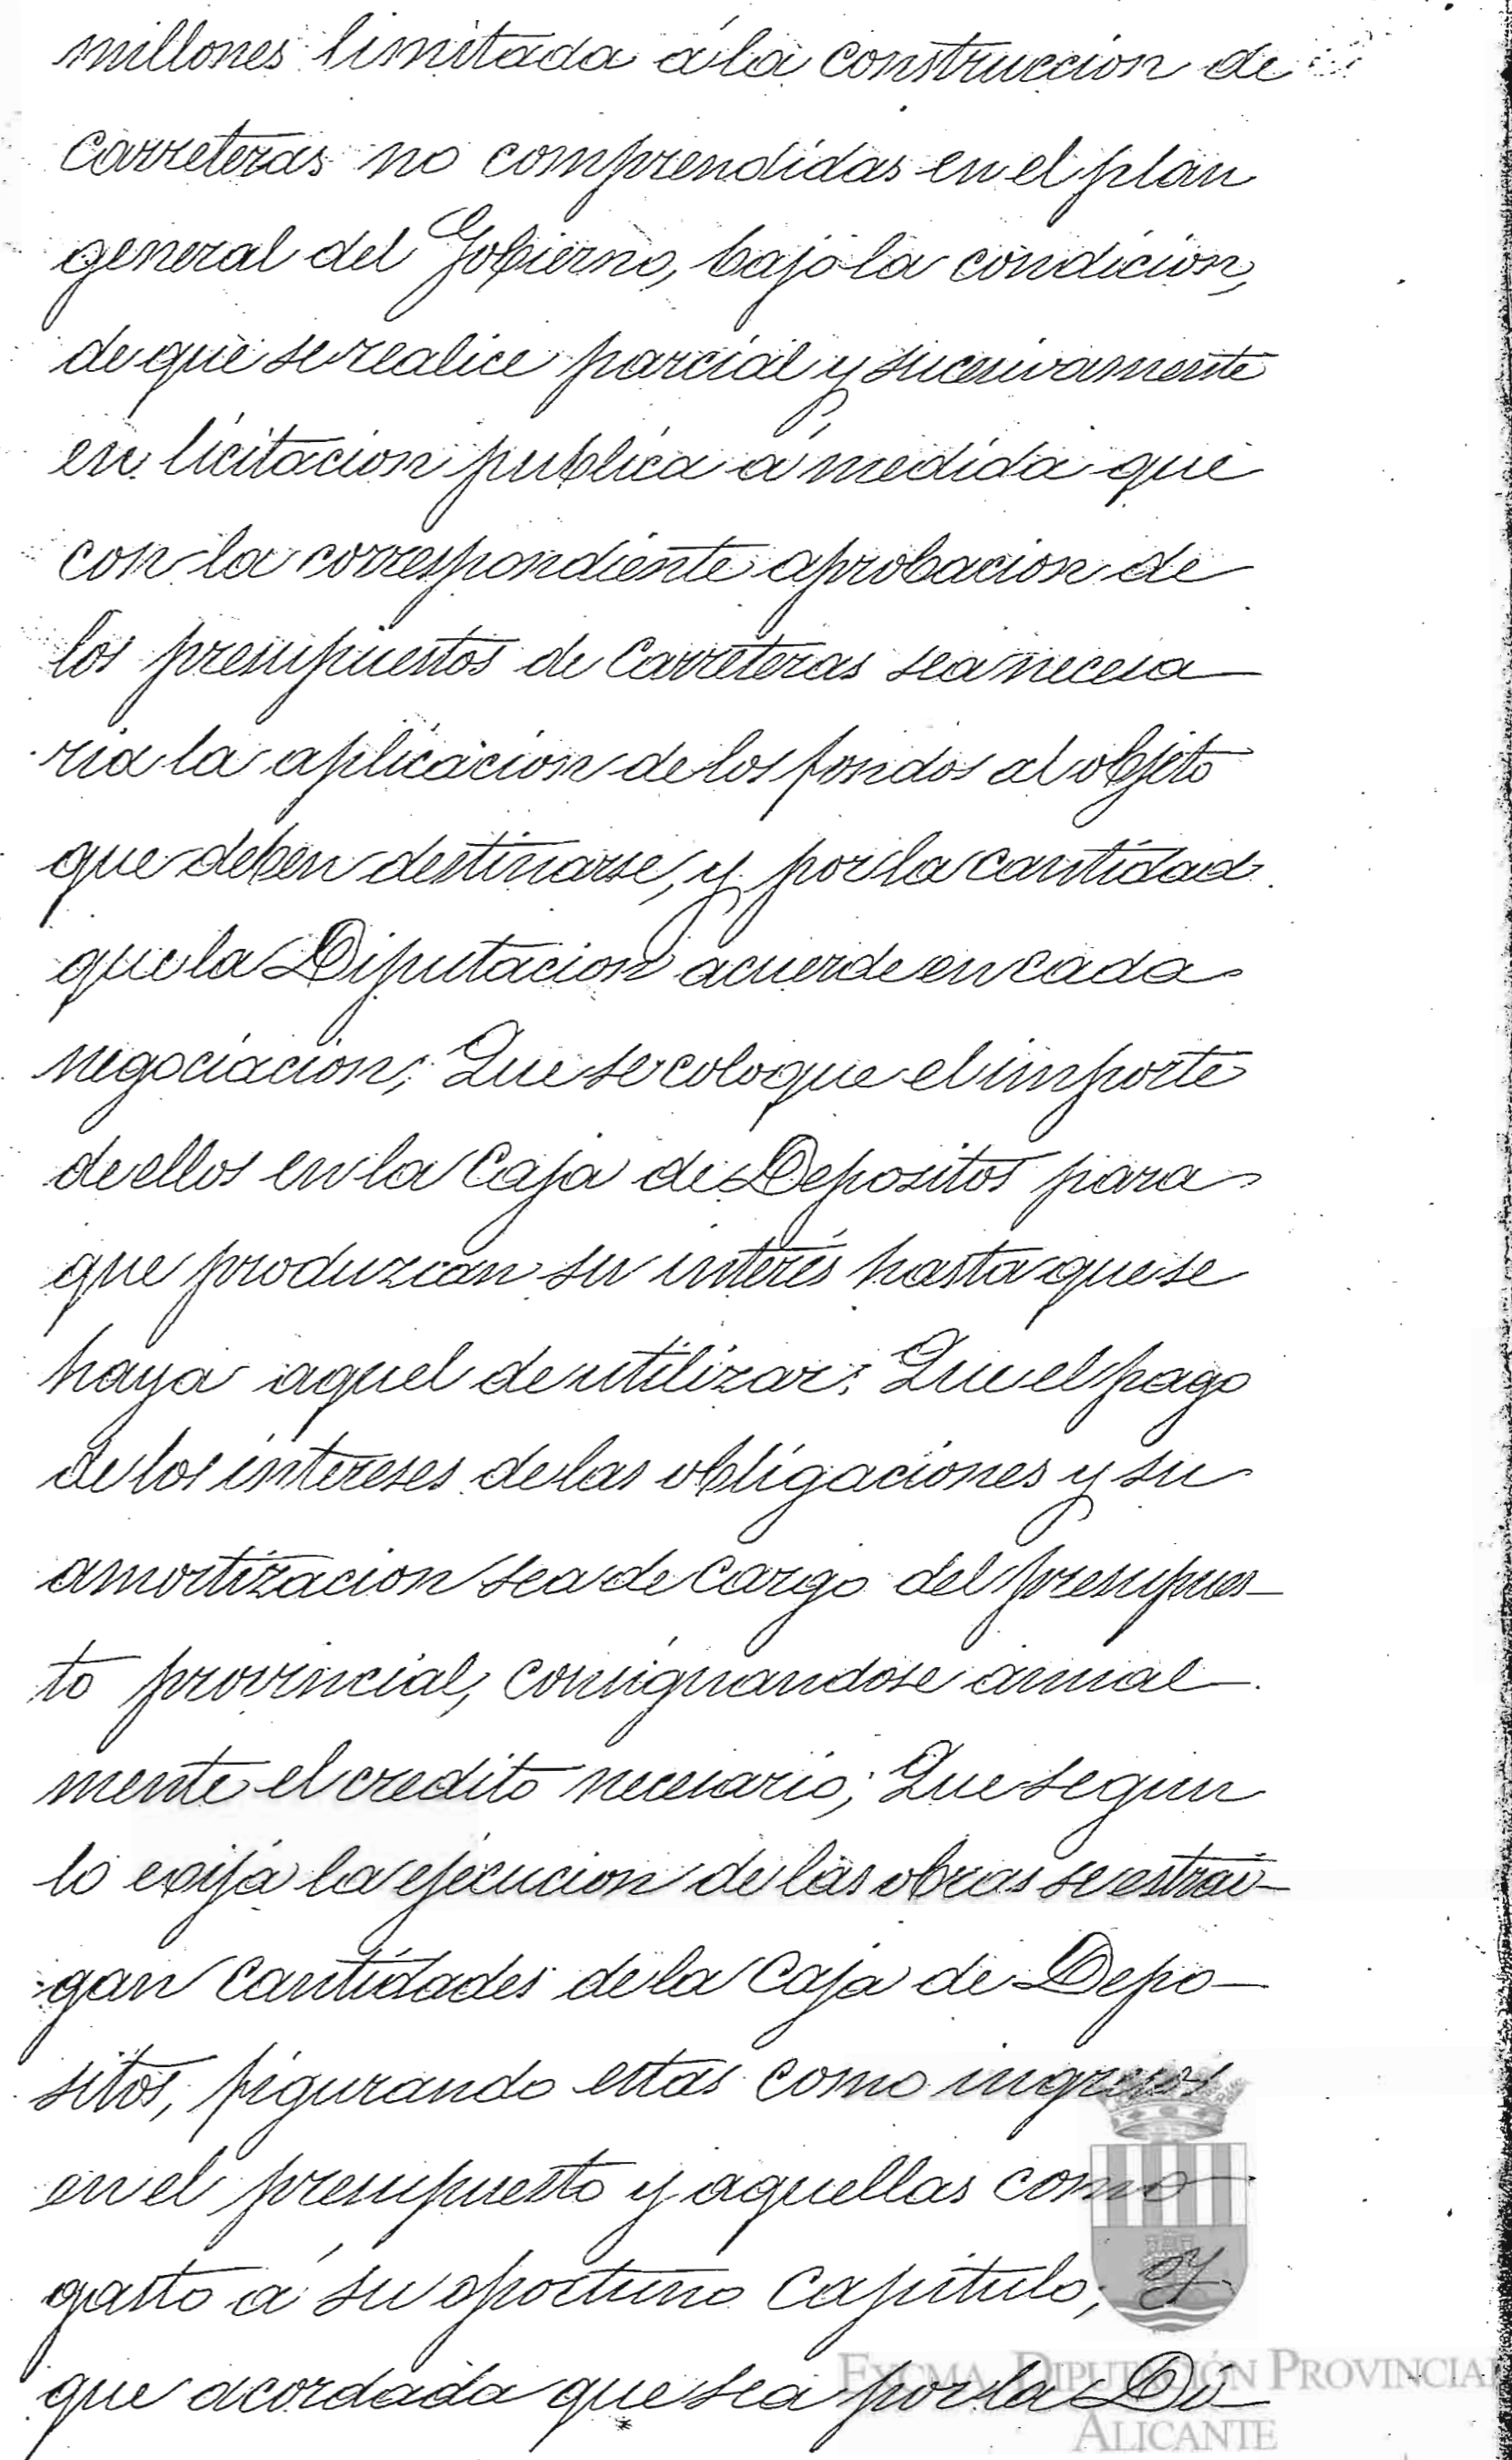 millones limitada á la construccion de
carreteras no comprendidas en el plan
general del Gobierno, bajo la condicion,
de que se realice parcial y sucesivamente
en licitacion publica á medida que
con la correspondiente aprobacion de
los presupuestos de carreteras sea necesa-
ria la aplicacion de los fondos al objeto
que deben destinarse, y por la cantidad
que la Diputacion acuerde en cada
negociacion; Que se coloque el importe
de ellos en la Caja de Depositos para
que produzcan su interés hasta que se
haya aquel de utilizar: Que el pago
de los intereses de las obligaciones y su
amortizacion sea de cargo del presupues-
to provincial, consignandose anual-
mente el credito necesario; Que segun
lo exija la ejecucion de las obras se estrai-
gan cantidades de la Caja de Depo-
sitos, figurando estas como ingresos
en el presupuesto y aquellas como
gasto á su oportuno capitulo; Y
que acordada que sea por la Di-
EXCMA. DIPUTACIÓN PROVINCIAL
ALICANTE